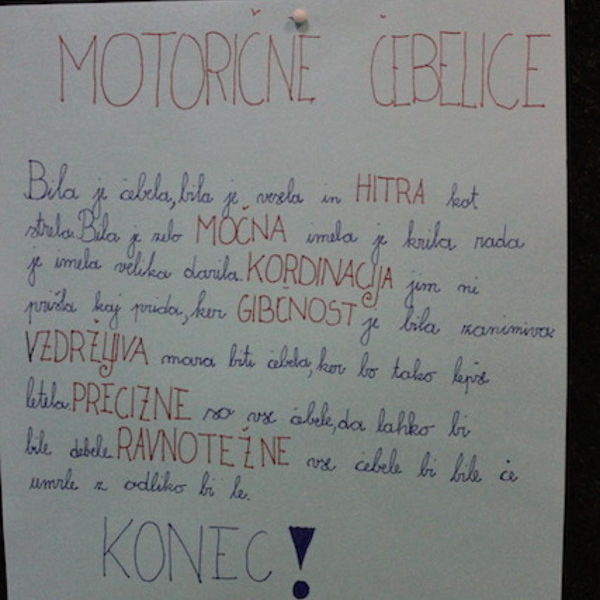 MOTORIČNE ČEBELICE
Bila je čebela, bila je vesela in HITRA kot
strela. Bila je zelo MOČNA imela je krila rada
je imela velika darila. KORDINACIJA jim ni
prišla kaj prida, ker GIBČNOST je bila zanimiva.
VZDRŽLJIVA mara biti čebela, ker bo tako lepše
letela. PRECIZNE so vse čebele, da lahko bi
bile debele. RAVNOTEŽNE vse čebele bi bile če
umrle z odliko bi le.
KONEC!